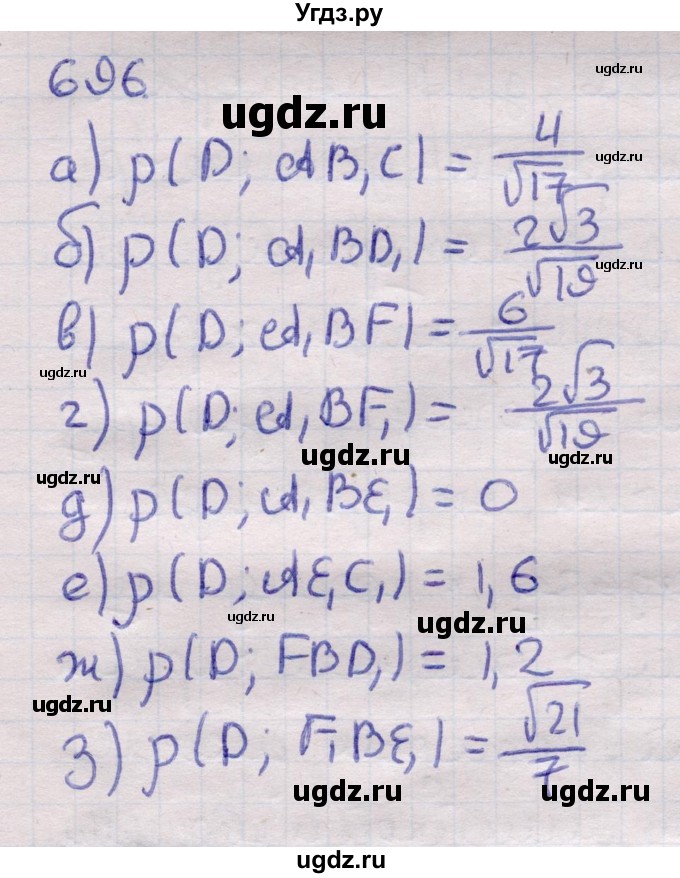 Угдз.ру
ugdz.ru
696
ugdz.ru
а) p(D; AB₁C) = 4/√17
ugdz.ru
б) p(D; A₁BD₁) = 2√3/√19
ugdz.ru
в) p(D; A₁BF) = 6/√17
ugdz.ru
г) p(D; A₁BF₁) = 2√3/√19
ugdz.ru
ugdz.ru
ugdz.ru
д) p(D; A₁BE₁) = 0
е) p(D; AE₁C₁) = 1,6
ugdz.ru
ж) p(D; FBD₁) = 1,2
ugdz.ru
з) p(D; F₁BE₁) = √21/7
ugdz.ru
ugdz.ru
ugdz.ru